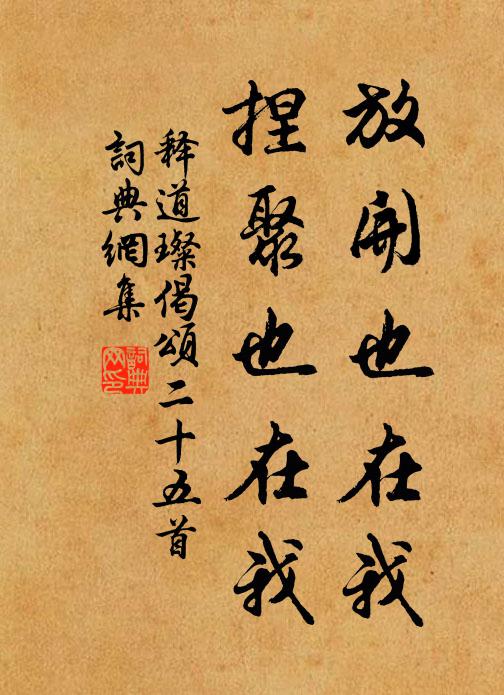 放開也在我
捏聚也在我
释道璨偈頌二十五首
詞典網集
詞典网印